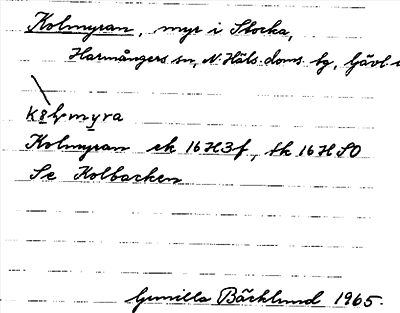 Kolmyran, myr i Stocka,
Harmångers sn, N. Häls. doms. tg, Gävl.
myra
Kolmyran ek 16H3f, tk 16H SO
Se Kolbacken
Gunilla Bäcklund 1965.